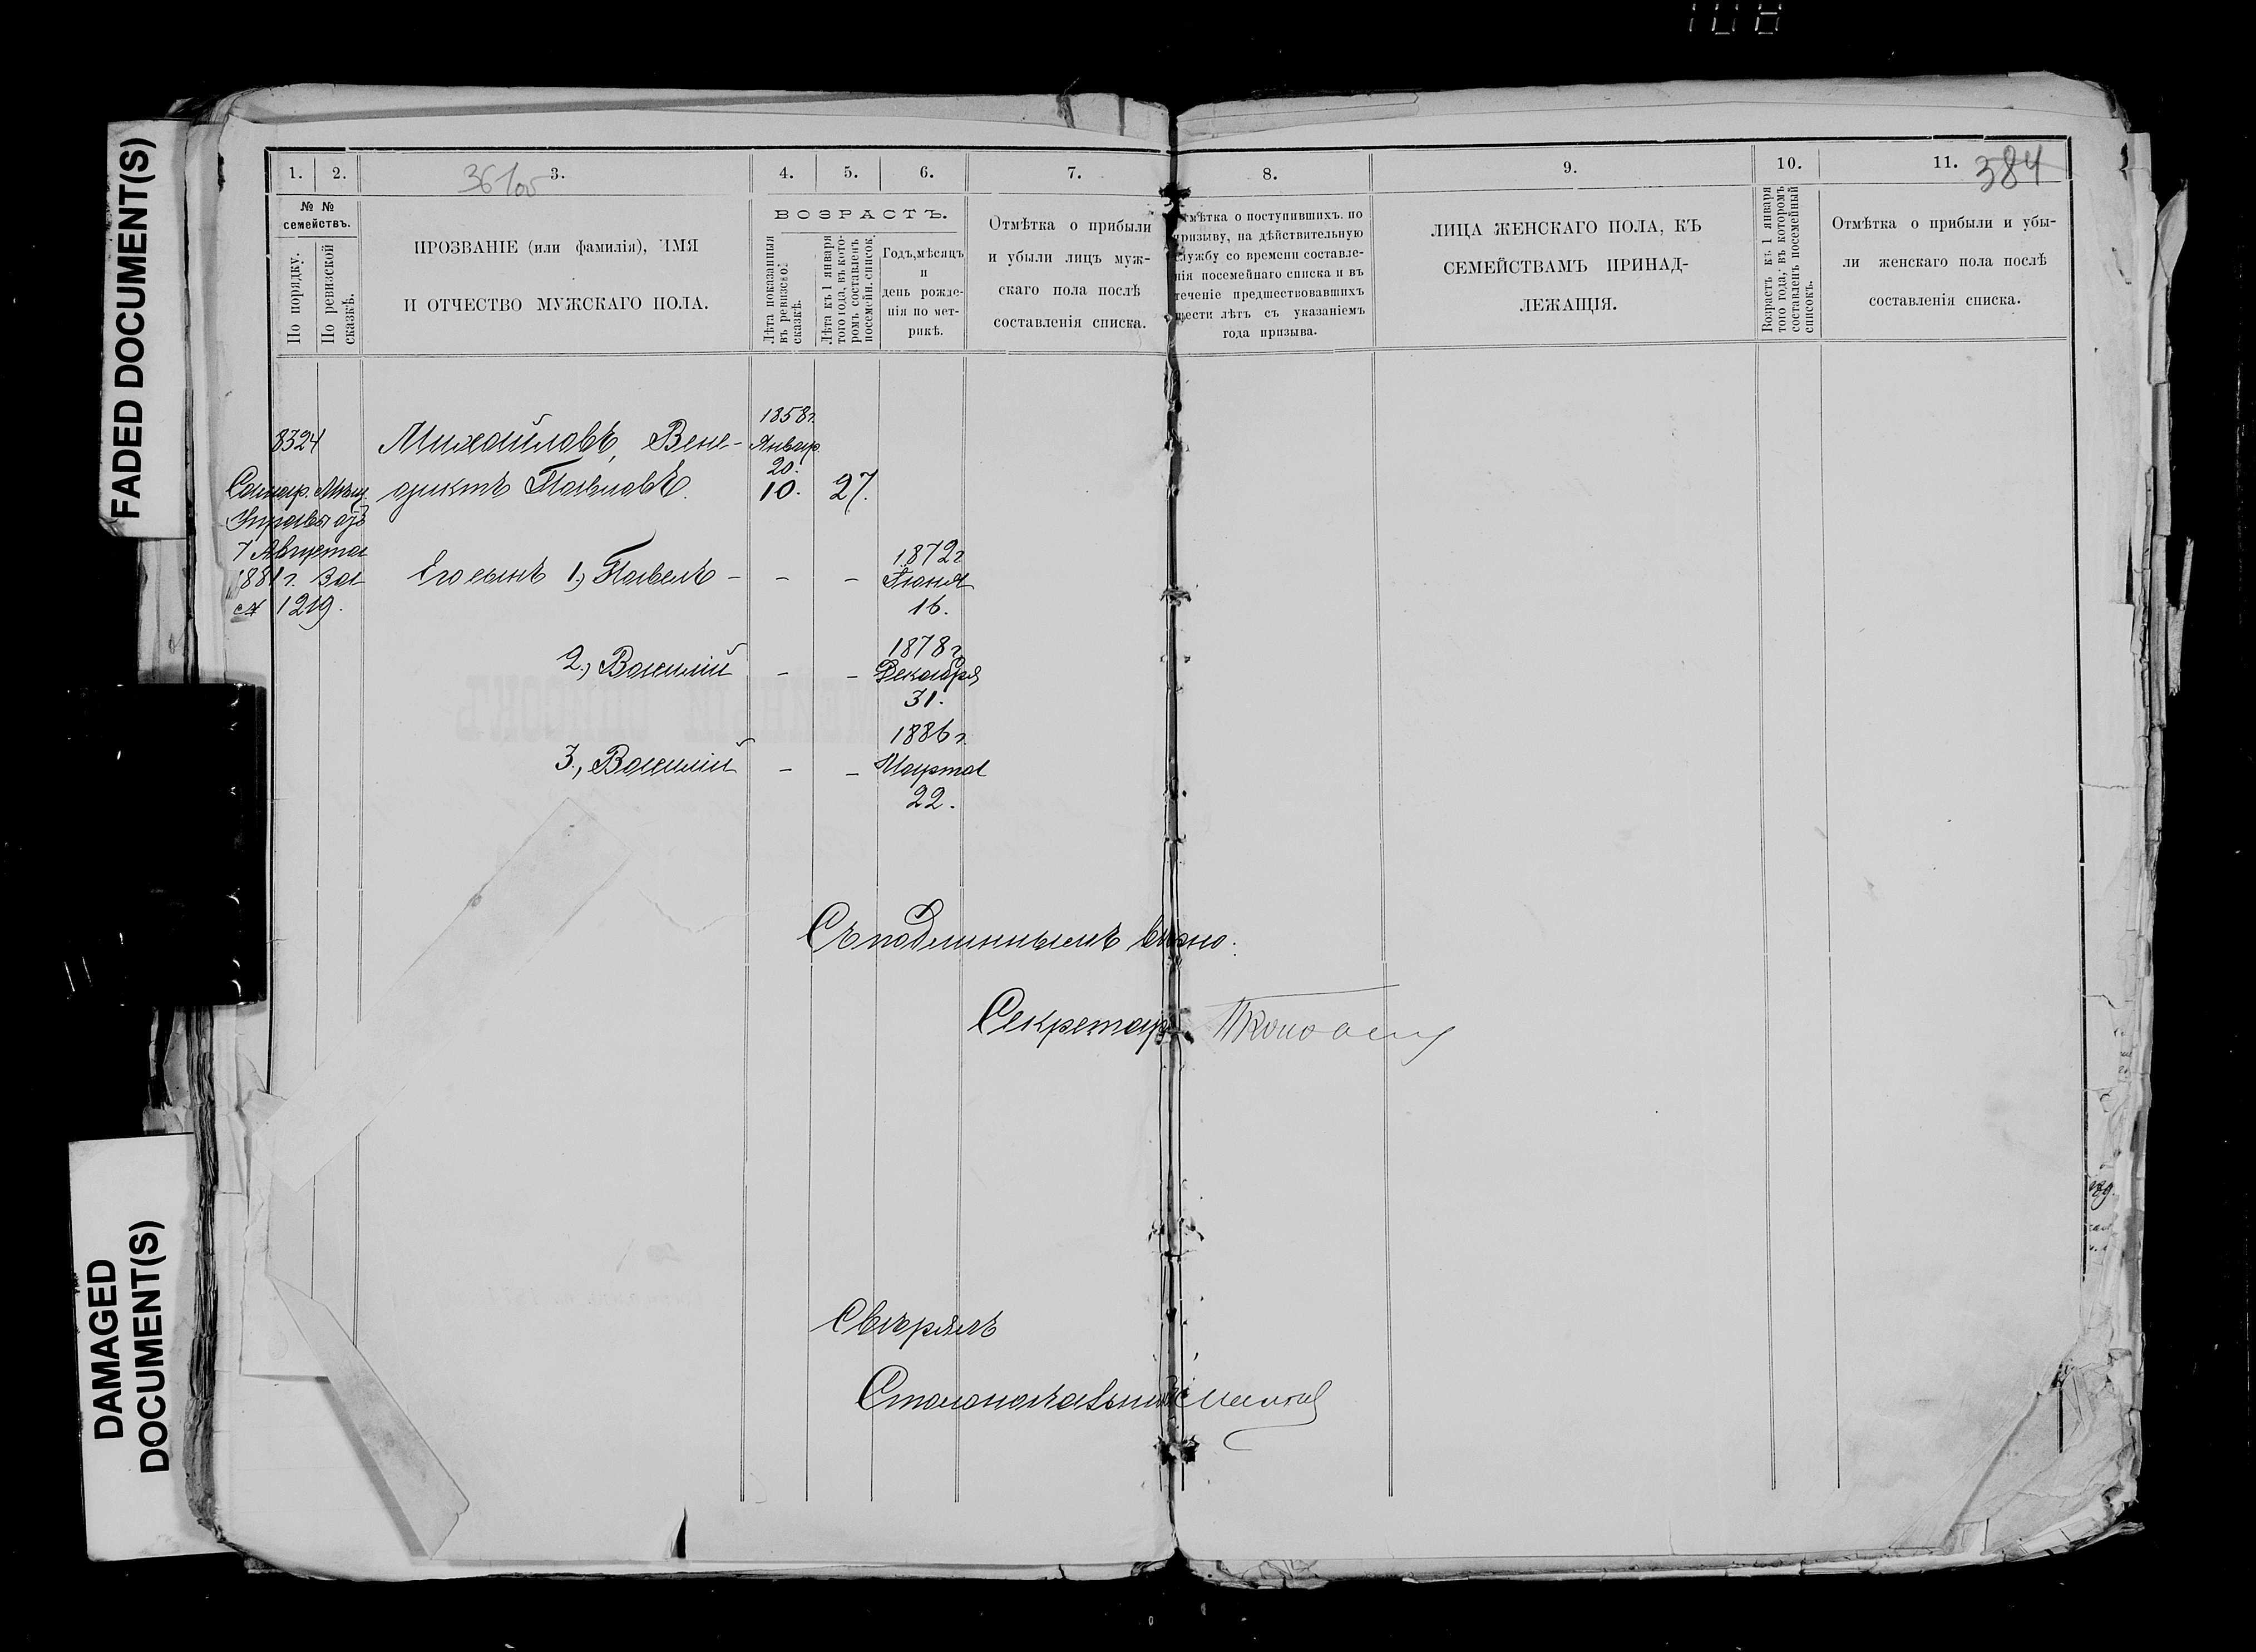 108
FADED DOCUMENT(S)
DAMAGED
DOCUMENT(S)
1. 2. 3. 4. 5. 6. 7.
№ №
семействъ.
По порядку.
По ревизской
сказкѣ.
ПРОЗВАНІЕ (или фамилія), ИМЯ
И ОТЧЕСТВО МУЖСКАГО ПОЛА.
ВОЗРАСТЪ.
Лѣта показанныя
въ ревизской
сказкѣ.
Лѣта къ 1 января
того года, въ кото-
ромъ составленъ
посемейн. список.
Годъ, мѣсяцъ
и
день рожде-
нія по мет-
рикѣ.
Отмѣтка о прибыли
и убыли лицъ муж-
скаго пола послѣ
составленія списка.
8324
Михайловъ, Вене-
диктъ Павловъ.
1858 г.
Январ.
20.
10. 27.
Самар. Мѣщ.
Управы отъ
7 Августа
1881 г. за
№ 1219.
Его сынъ 1, Павелъ - - -
1872 г
Іюня
16.
2, Василій - -
1878 г
Декабря
31.
3, Василій - -
1886 г.
Марта
22.
Съ подлиннымъ вѣрно:
Секретарь
Свѣрялъ
Столоначальникъ
8. 9. 10. 11.
384
Отмѣтка о поступившихъ. по
призыву, на дѣйствительную
службу со времени составле-
нія посемейнаго списка и въ
теченіе предшествовавшихъ
шести лѣтъ съ указаніемъ
года призыва.
ЛИЦА ЖЕНСКАГО ПОЛА, КЪ
СЕМЕЙСТВАМЪ ПРИНАД-
ЛЕЖАЩІЯ.
Возрастъ къ 1 января
того года, въ которомъ
составленъ посемейный
списокъ.
Отмѣтка о прибыли и убы-
ли женскаго пола послѣ
составленія списка.